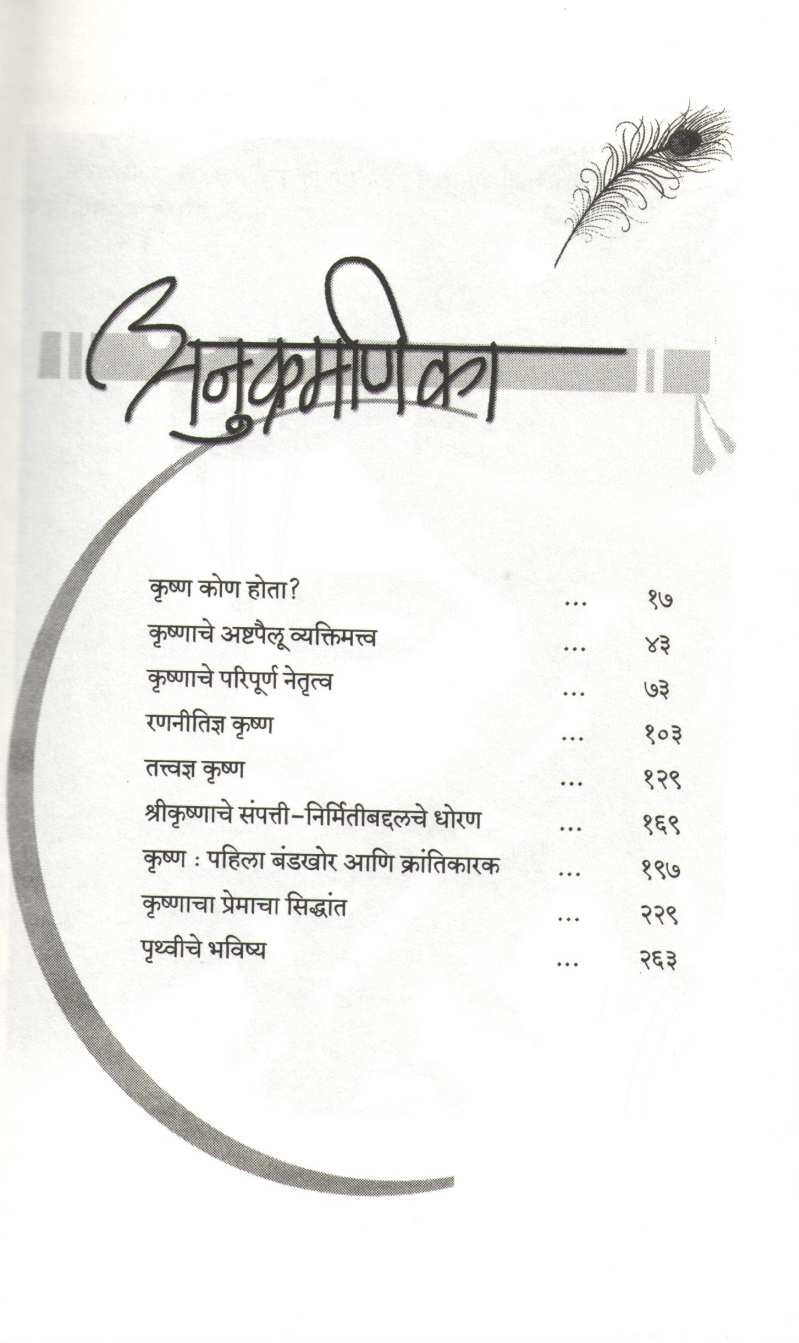 अनुक्रमणिका
कृष्ण कोण होता? ... १७
कृष्णाचे अष्टपैलू व्यक्तिमत्त्व ... ४३
कृष्णाचे परिपूर्ण नेतृत्व ... ७३
रणनीतिज्ञ कृष्ण ... १०३
तत्त्वज्ञ कृष्ण ... १२९
श्रीकृष्णाचे संपत्ती-निर्मितीबद्दलचे धोरण ... १६९
कृष्ण : पहिला बंडखोर आणि क्रांतिकारक ... १९७
कृष्णाचा प्रेमाचा सिद्धांत ... २२९
पृथ्वीचे भविष्य ... २६३